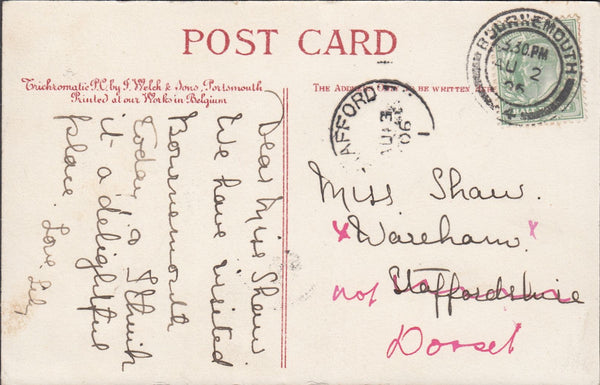 POST CARD
Trichromatic P.C. by J. Welch & Sons, Portsmouth
Printed at our Works in Belgium
THE ADDRESS BE WRITTEN
BOURNEMOUTH
3.30PM
AU 2
06
4
AFFORD
AU 3
06
1
Dear Miss Shaw.
We have visited
Bournemouth
Today, & I think
it a delightful
place. Love
Miss Shaw.
x Wareham. x
not Staffordshire
Dorset